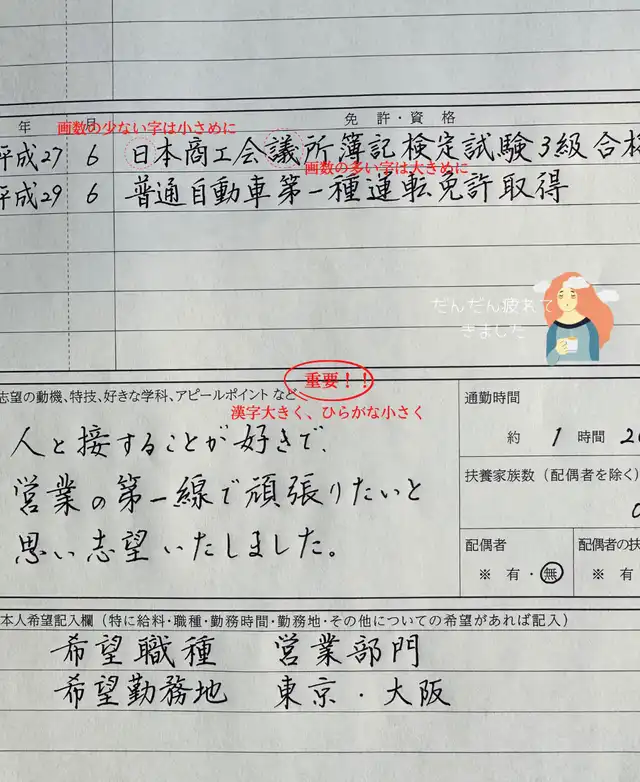 年 月 免許・資格
画数の少ない字は小さめに
平成27 6 日本商工会議所簿記検定試験3級合格
画数の多い字は大きめに
平成29 6 普通自動車第一種運転免許取得
だんだん疲れて
きました
重要!!
志望の動機、特技、好きな学科、アピールポイントなど
漢字大きく、ひらがな小さく
人と接することが好きで、
営業の第一線で頑張りたいと
思い志望いたしました。
通勤時間
約 1 時間 20
扶養家族数(配偶者を除く)
0
配偶者
※ 有・無
配偶者の扶
※ 有
本人希望記入欄(特に給料・職種・勤務時間・勤務地・その他についての希望があれば記入)
希望職種 営業部門
希望勤務地 東京・大阪